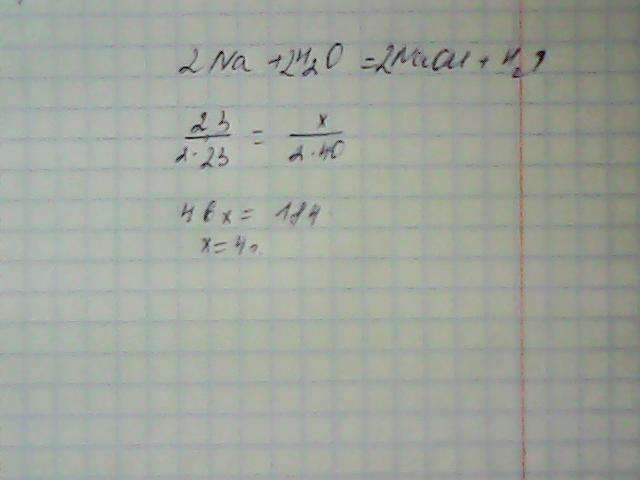 2Na + 2H₂O = 2NaOH + H₂↑
2,3 / 2·23 = x / 2·40
46x = 184
x = 4г.